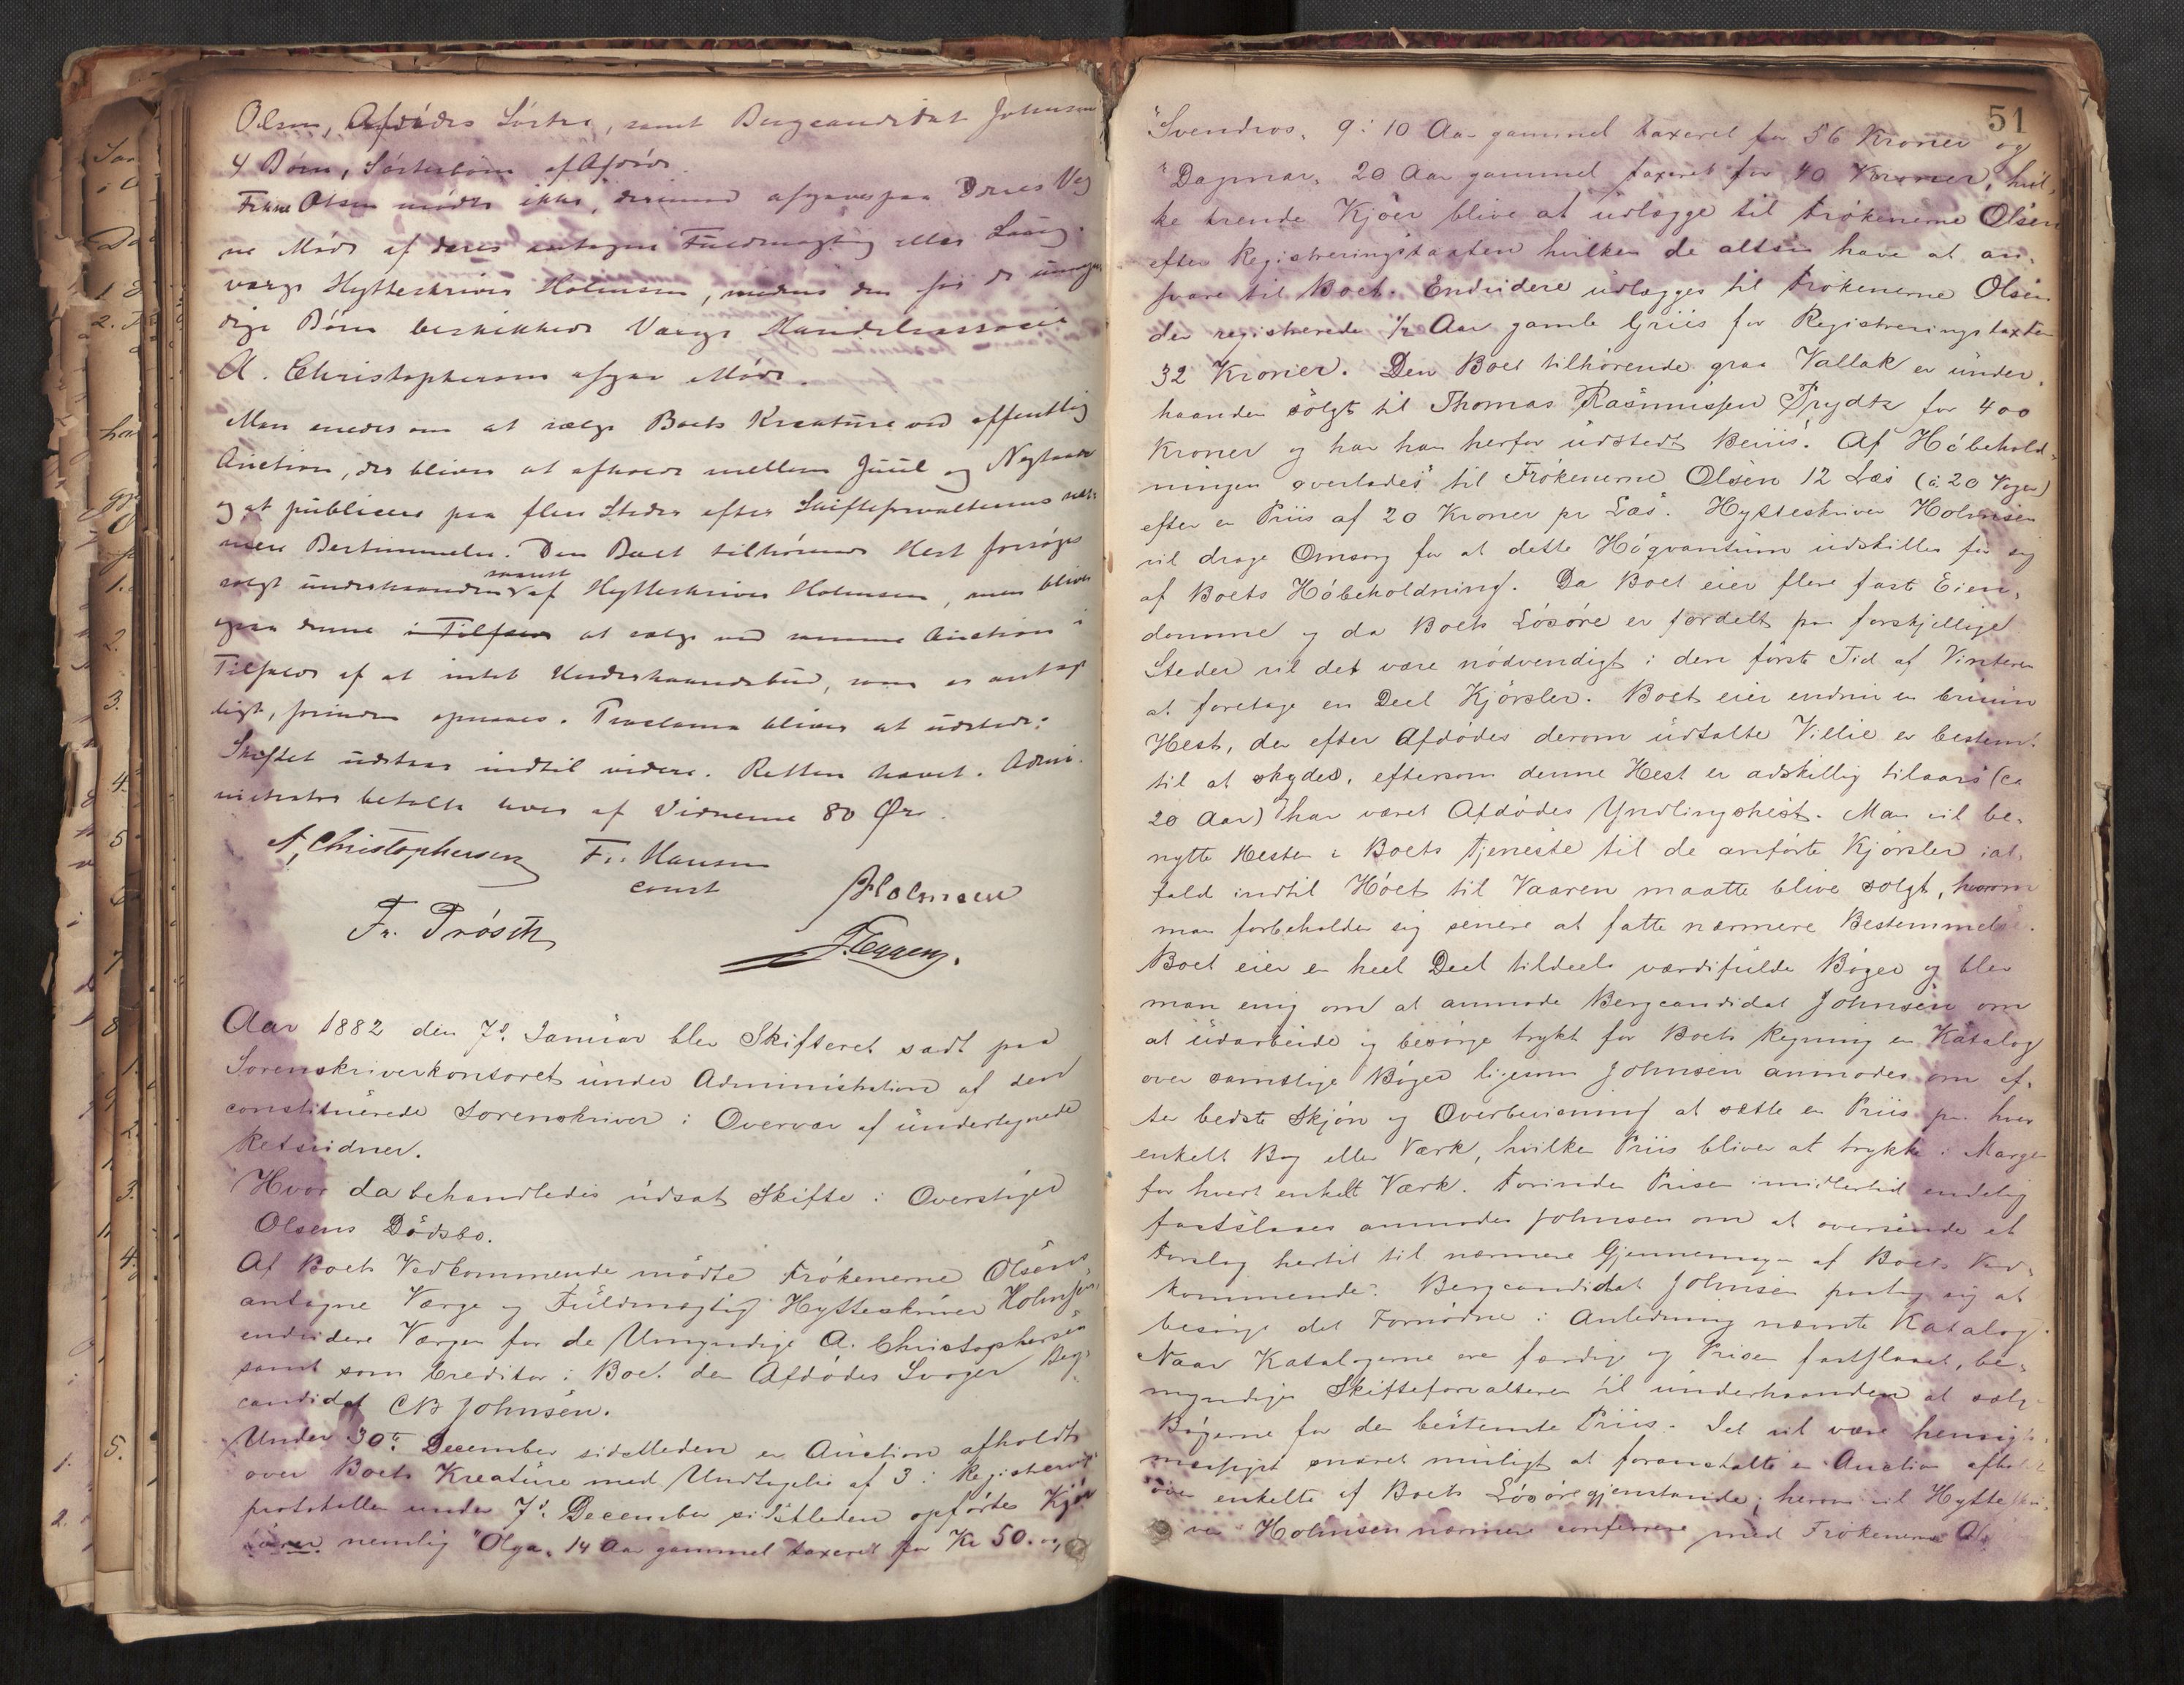 Olsen, Afdødes Søstre, samt Bergcandidat Johnsens
4 Børn, Søsterbørn af Afdøde.
Frkne Olsen mødte ikke, derimod afgaves paa Deres Veg
ne Møde af deres antagne Fuldmægtig eller Laug
værge Hytteskriver Holmsen, medens den for de umyn
dige Børn beskikkede Værge
A. Christophersen afgav Møde.
Man enedes om at sælge Boets Kreature ved offentlig
Auction, der bliver at afholde mellem Juul og Nytaar
og at publicere paa flere Steder efter Skifteforvalterens nær
mere Bestemmelse. Den Boet tilhørende Hest forsøges
solgt underhaanden af Hytteskriver Holmsen, men bliver
ogsaa denne i Tilfælde at sælge ved samme Auction i
Tilfælde af at intet Underhaandsbud, som er antage
ligt, forinden opnaaes. Proclama bliver at udstede.
Skiftet udstaar indtil videre. Retten hævet. Admi
nistrator betalte hver af Vidnerne 80 Øre.
A. Christophersen Fr. Hansen
const
Holmsen
Fr. Prösch
Aar 1882 den 7de Januar blev Skifteret sadt paa
Sorenskriverkontoret under Administration af den
constituerede Sorenskriver i Overvær af undertegnede
Retsvidner.
Hvor da behandledes udsat Skifte i Overstiger
Olsens Dødsbo.
Af Boets Vedkommende mødte Frøkenerne Olsens
antagne Værge og Fuldmægtig Hytteskriver Holmsen,
endvidere Værgen for de Umyndige A. Christophersen
samt som Creditor i Boet den Afdødes Svoger Berg-
candidat CB Johnsen.
Under 30te December sidstleden er Auction afholdt
over Boets Kreature med Undtagelse af 3 i Registrerings
protokollen under 7de December sidstleden opførte Kjør
nemlig "Olga" 14 Aar gammel taxeret for Kr 50. og
51
"Svendros" 9 à 10 Aar gammel taxeret for 56 Kroner og
"Dagmar" 20 Aar gammel taxeret for 40 Kroner, hvil-
ke trende Kjøer blive at udlægge til Frøkenerne Olsen
efter Registreringstaxten hvilken de altsaa have at an-
svare til Boet. Endvidere udlægges til Frøkenerne Olsen
den registrerede 1/2 Aar gamle Griis for Registreringstaxten
32 Kroner. Den Boet tilhørende graa Vallak er under
haanden solgt til Thomas Rasmussen Prydtz for 400
Kroner og har han herfor udstedt Beviis. Af Høbehold-
ningen overlades til Frøkenerne Olsen 12 Læs (à 20 Voger)
efter en Priis af 20 Kroner pr Læs. Hytteskriver Holmsen
vil drage Omsorg for at dette Høqvantum udskilles for sig
af Boets Høbeholdning. Da Boet eier flere faste Eien-
domme og da Boets Løsøre er fordelt paa forskjellige
Steder vil det være nødvendigt i den første Tid af Vinteren
at foretage en Deel Kjørsler. Boet eier endnu en bruun
Hest, der efter Afdødes derom udtalte Villie er bestemt
til at skydes, eftersom denne Hest er adskillig tilaars (ca
20 Aar) har været Afdødes Yndlingshest. Man vil be-
nytte Hesten i Boets Tjeneste til de anførte Kjørsler ial-
fald indtil Høet til Vaaren maatte blive solgt, hvorom
man forbeholder sig senere at fatte nærmere Bestemmelse.
Boet eier en heel Deel tildeels værdifulde Bøger og blev
man enig om at anmode Bergcandidat Johnsen om
at udarbeide og besørge trykt for Boets Regning en Katalog
over samtlige Bøger ligesom Johnsen anmodes om ef-
ter bedste Skjøn og Overbeviisning at sætte en Priis paa hver
enkelt Bog eller Værk, hvilken Priis bliver at trykke i Margen
for hvert enkelt Værk. Forinden Prisen imidlertid endelig
fastslaaes anmodes Johnsen om at oversende et
Forslag hertil til nærmere Gjennemsyn af Boets Ved-
kommende. Bergcandidat Johnsen paatog sig at
besørge det Fornødne i Anledning nævnte Katalog.
Naar Katalogerne ere færdig og Prisen fastslaaet, be-
myndiges Skifteforvalteren til underhaanden at sælge
Bøgerne for den bestemte Priis. Det vil være hensigts-
mæssigst snarest muligt at foranstalte en Auction afholdt
over enkelte af Boets Løsøregjenstande; herom vil Hytteskri-
ver Holmsen nærmere conferere med Frøkenerne Ol-